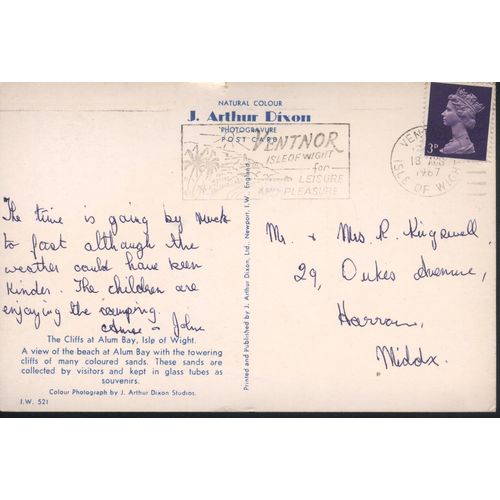 NATURAL COLOUR
J. Arthur Dixon
PHOTOGRAVURE
POST CARD
VENTNOR
ISLE OF WIGHT
for
LEISURE
AND PLEASURE
3D
VENT
18
1967
ISLE OF WIGHT
The time is going by much
to fast although the
weather could have been
kinder. The children are
enjoying the camping.
& John
Mr. & Mrs. R. Kingswell,
29, Dukes Avenue,
Harrow,
Middx.
The Cliffs at Alum Bay, Isle of Wight.
A view of the beach at Alum Bay with the towering
cliffs of many coloured sands. These sands are
collected by visitors and kept in glass tubes as
souvenirs.
Colour Photograph by J. Arthur Dixon Studios.
I.W. 521
Printed and Published by J. Arthur Dixon, Ltd., Newport, I.W., England.